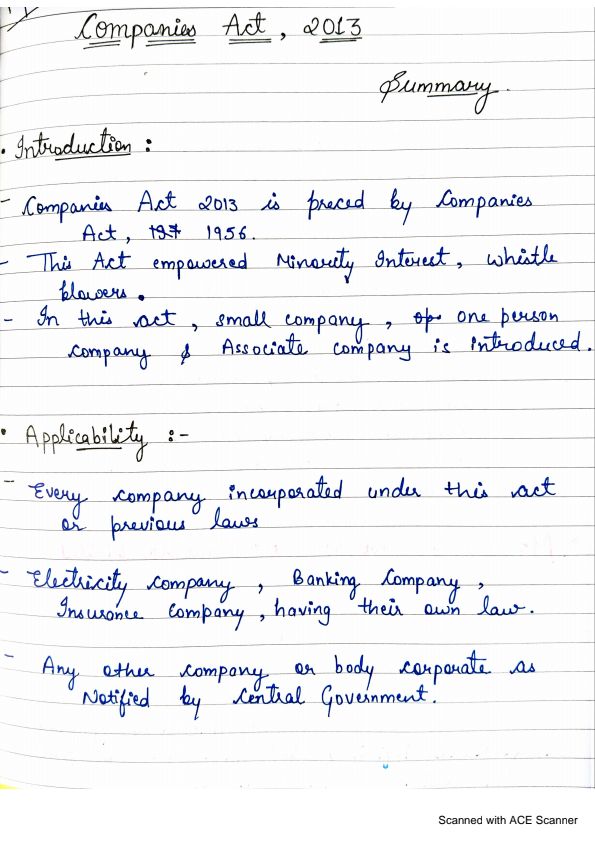 Companies Act, 2013
Summary.
• Introduction :
- Companies Act 2013 is preced by Companies
Act, 1956.
- This Act empowered Minority Interest, whistle
blowers.
- In this act, small company, one person
company & Associate company is introduced.
• Applicability :-
- Every company incorporated under this act
or previous laws
- Electricity company, Banking Company,
Insurance company, having their own law.
- Any other company or body corporate as
Notified by Central Government.
Scanned with ACE Scanner